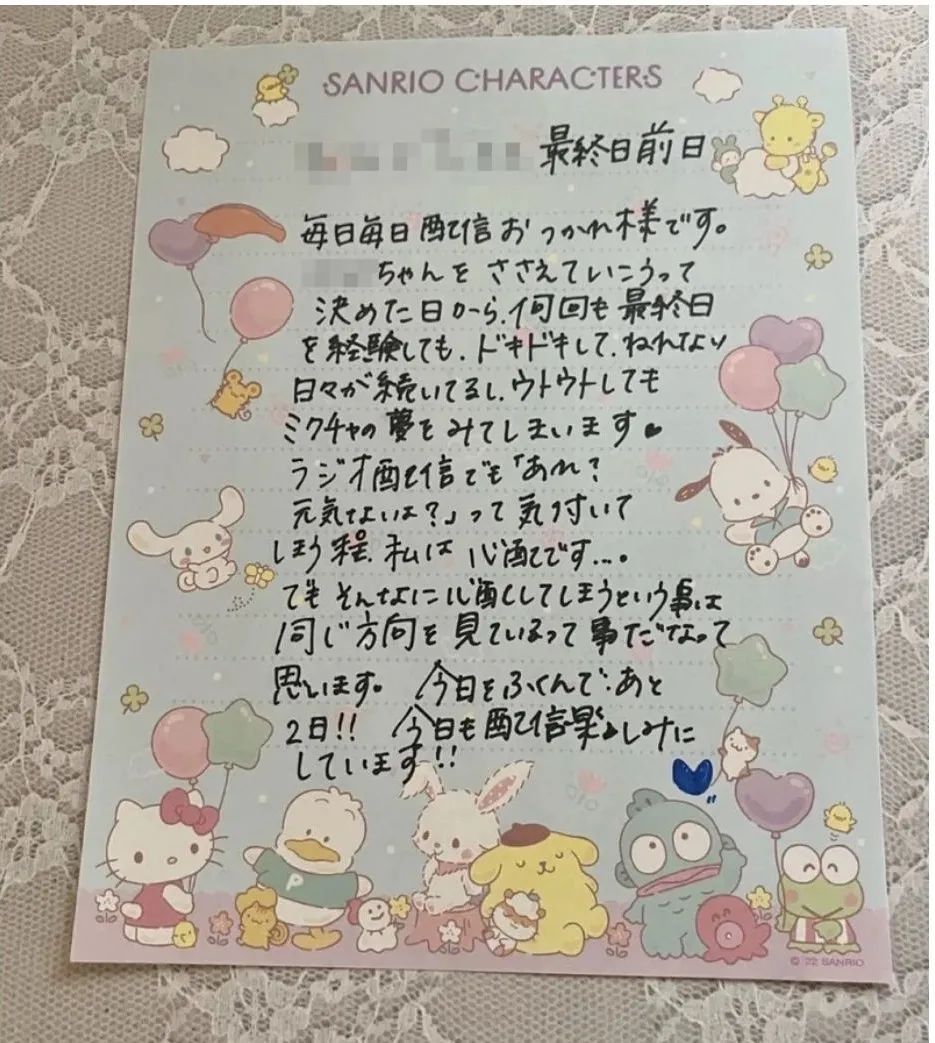 SANRIO CHARACTERS
最終日前日
毎日毎日配信おつかれ様です。
ちゃんをささえていこうって
決めた日から、何回も最終日
を経験しても、ドキドキして、ねれてない
日々が続いてるし、ウトウトしても
ミクチャの夢をみてしまいます♥
ラジオ配信でも「あれ?
元気ないは?」って気付いて
しまう程、私は心配です...。
でもそんなに心配してしまうという事は
同じ方向を見ているって事だなって
思います。 今日をふくんで、あと
2日!! 今日も配信楽しみに
しています!!
P
© '22 SANRIO